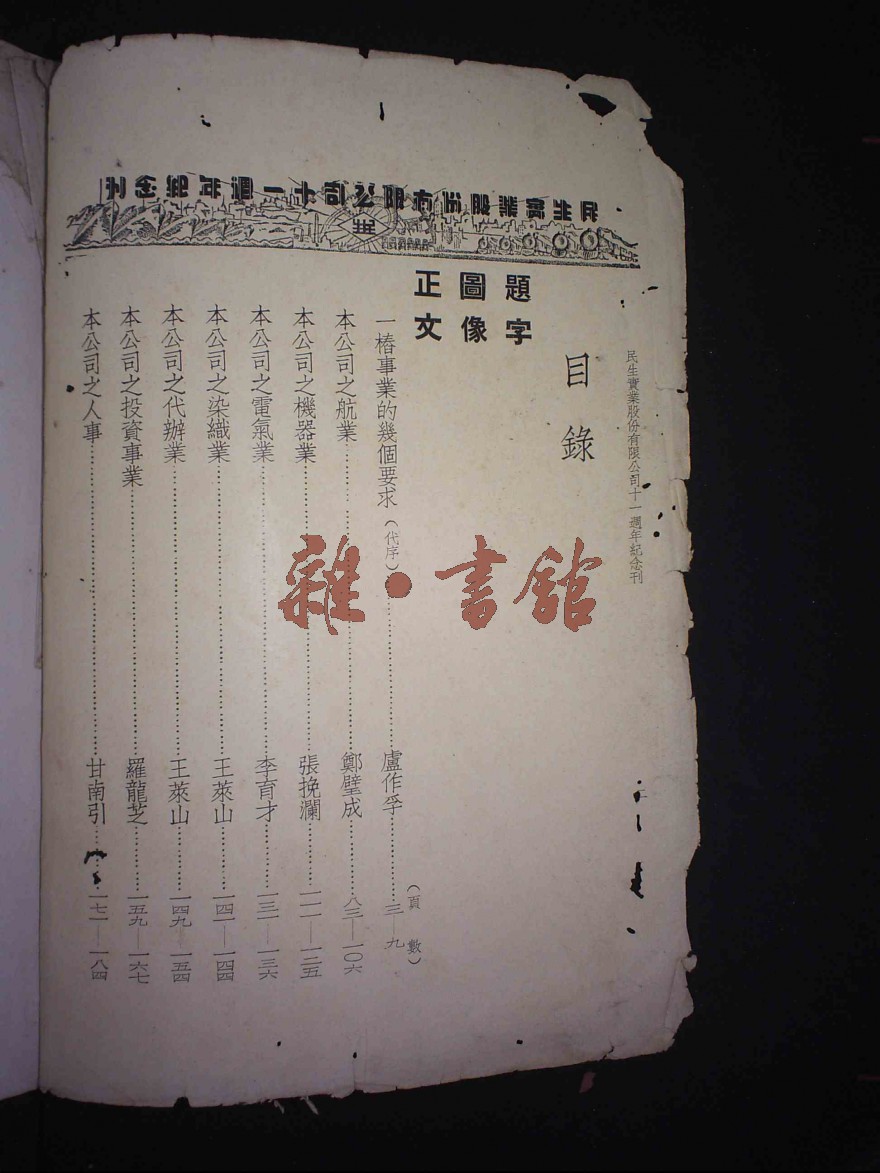 民生實業股份有限公司十一週年紀念刊
民生實業股份有限公司十一週年紀念刊
目錄
題字
圖像
正文
（頁數）
一樁事業的幾個要求（代序）………………盧作孚…………三—九
本公司之航業………………鄭璧成…………八三—一〇六
本公司之機器業………………張挽瀾…………一一一—一二五
本公司之電氣業………………李育才…………一三一—一三六
本公司之染織業………………王萊山…………一四一—一四四
本公司之代辦業………………王萊山…………一四九—一五四
本公司之投資事業………………羅龍芝…………一五九—一六七
本公司之人事………………甘南引…………一七一—一八四
雜·書舘